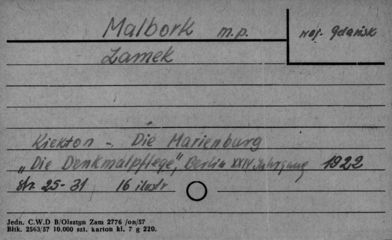 Malbork m.p.
woj. Gdańsk
Zamek
Kickton - Die Marienburg
„Die Denkmalpflege", Berlin XXIV Jahrgang 1922
str. 25-31 16 ilustr
Jedn. C.W.D B/Olsztyn Zam 2776 /on/57
Bltk. 2563/57 10.000 szt. karton kl. 7 g 220.